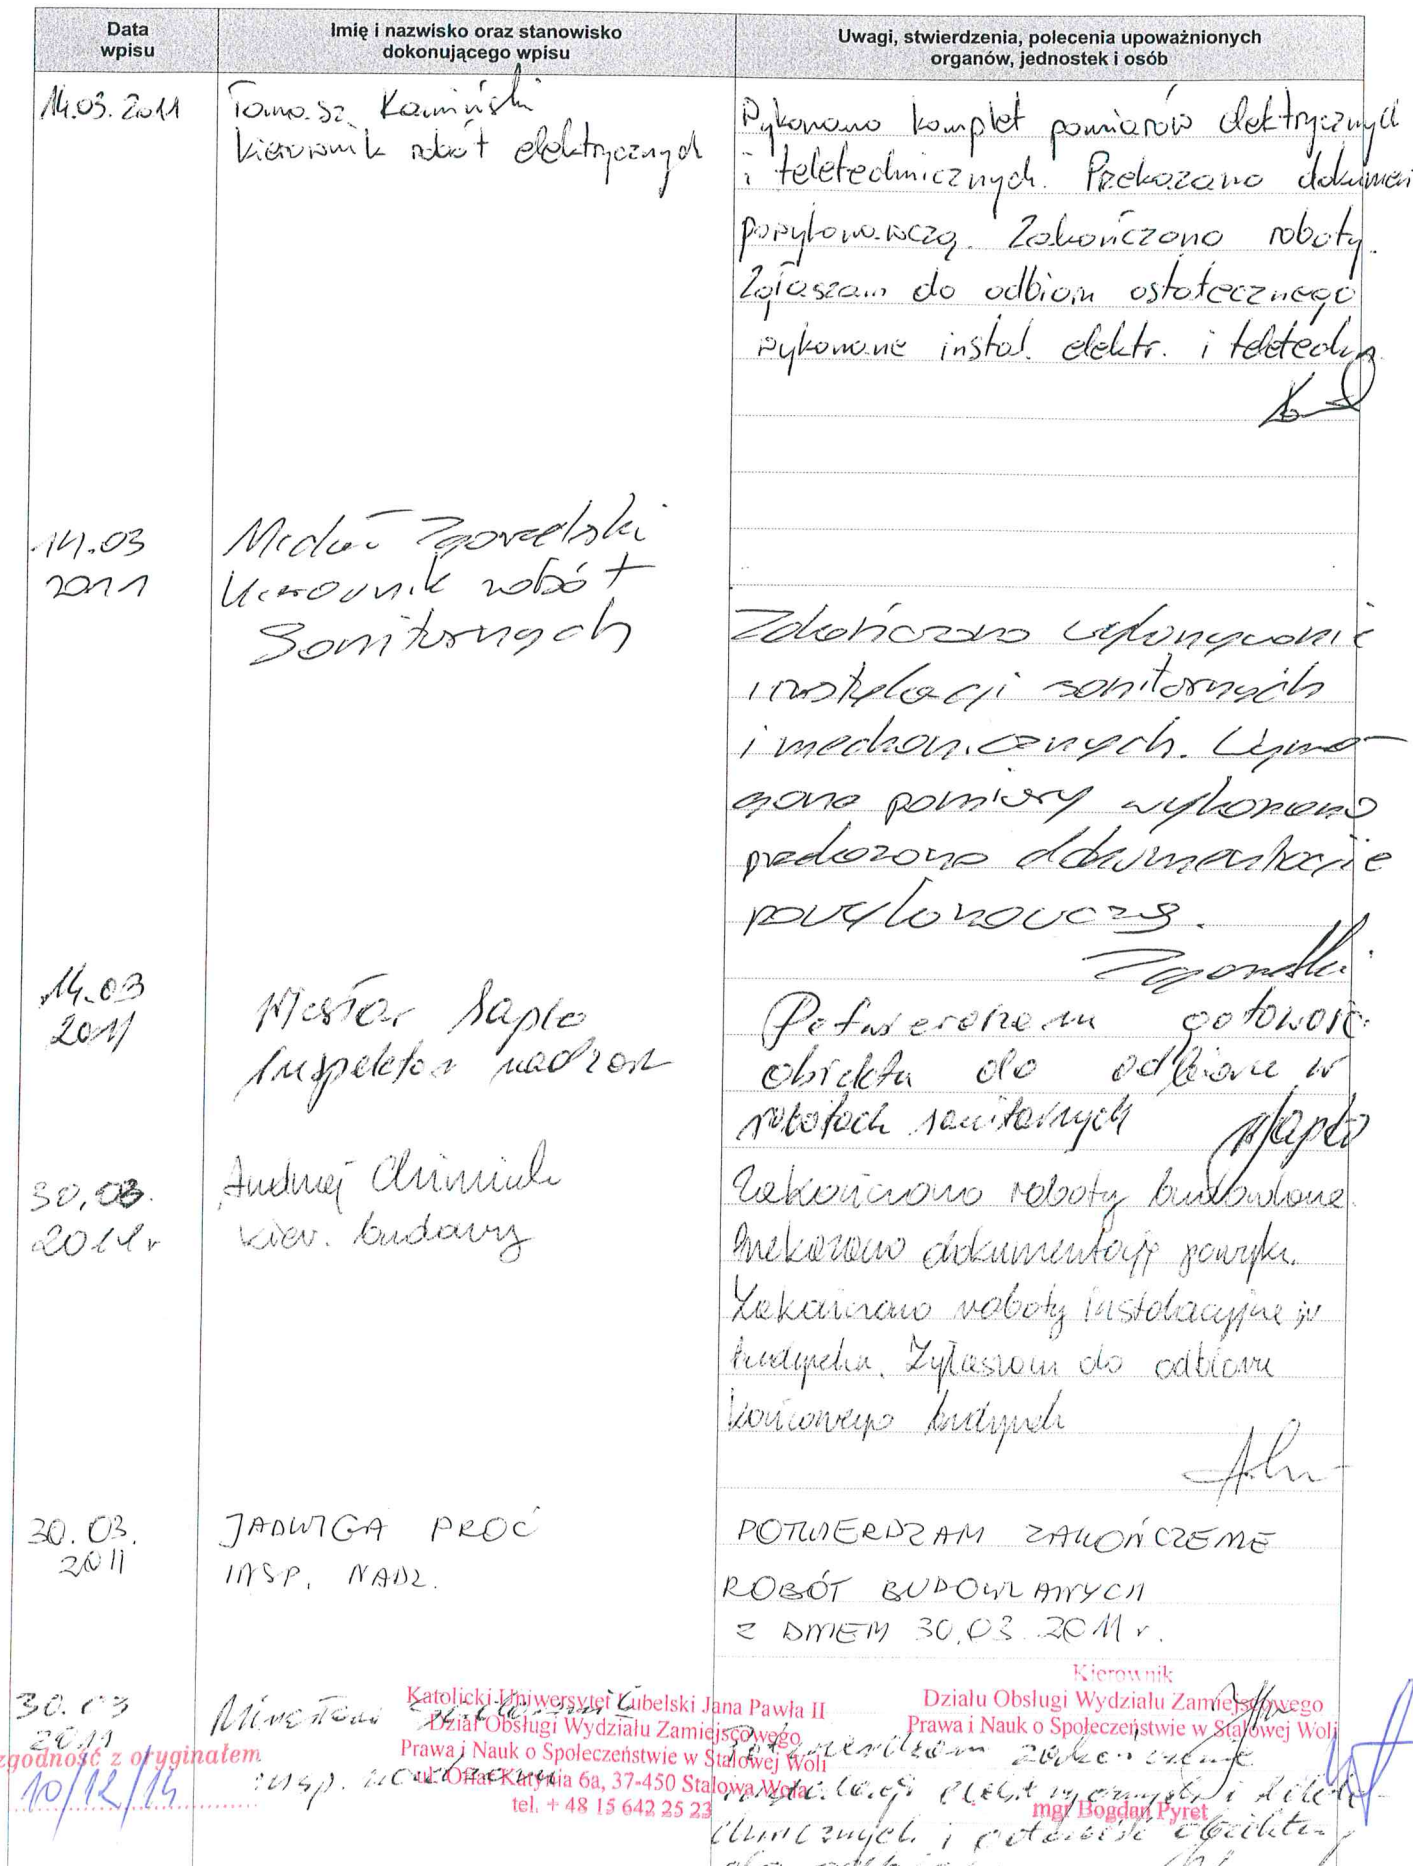 Data
wpisu
Imię i nazwisko oraz stanowisko
dokonującego wpisu
Uwagi, stwierdzenia, polecenia upoważnionych
organów, jednostek i osób
14.03.2011
Tomasz Kamiński
kierownik robót elektrycznych
Wykonano komplet pomiarów elektrycznych
i teletechnicznych. Przekazano dokumen
powykonawczą. Zakończono roboty.
Zgłaszam do odbioru ostatecznego
wykonane instal. elektr. i teletechn.
14.03
2011
Michał Zgorzelski
Kierownik robót
Sanitarnych
Zakończono wykonywanie
instalacji sanitarnych
i mechanicznych. Wyma-
gane pomiary wykonano
przekazano dokumentację
powykonawczą.
14.03
2011
Sapło
Inspektor nadzoru
Potwierdzam gotowość
obiektu do odbioru w
robotach sanitarnych
30.03.
2011r
Andrzej Chimiak
kier. budowy
Zakończono roboty budowlane.
Przekazano dokumentację powyk.
Zakończono roboty instalacyjne w
budynku. Zgłaszam do odbioru
końcowego budynek
30.03.
2011
JADWIGA PROĆ
INSP. NADZ.
POTWIERDZAM ZAKOŃCZENIE
ROBÓT BUDOWLANYCH
Z DNIEM 30.03.2011 r.
30.03
2011
Mirosław
insp. nadzoru
Potwierdzam zakończenie
instalacji elektrycznych i tele-
chnicznych i gotowość obiektu
Katolicki Uniwersytet Lubelski Jana Pawła II
Dział Obsługi Wydziału Zamiejscowego
Prawa i Nauk o Społeczeństwie w Stalowej Woli
ul. Ofiar Katynia 6a, 37-450 Stalowa Wola
tel. + 48 15 642 25 23
Kierownik
Działu Obsługi Wydziału Zamiejscowego
Prawa i Nauk o Społeczeństwie w Stalowej Woli
mgr Bogdan Pyret
zgodność z oryginałem
10/12/14